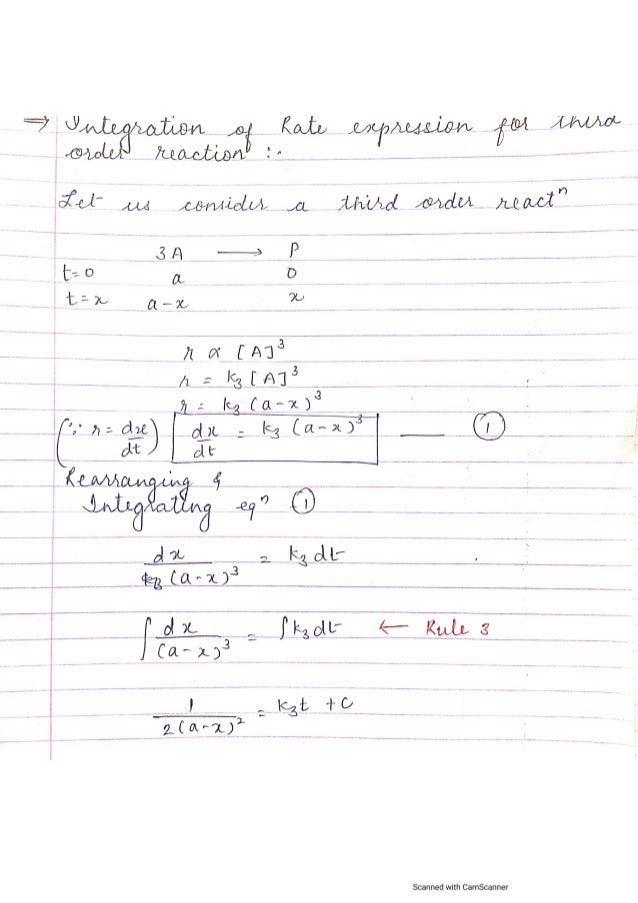 ⇒ Integration of Rate expression for third
order reaction :-
Let us consider a third order reactⁿ
3A ⟶ P
t=0 a 0
t=x a-x x
r ∝ [A]³
r = k₃[A]³
r = k₃(a-x)³
(∵ r = dx/dt) dx/dt = k₃(a-x)³ —— ①
Rearranging &
Integrating eqⁿ ①
dx/(a-x)³ = k₃dt
∫dx/(a-x)³ = ∫k₃dt ← Rule 3
1/2(a-x)² = k₃t + C
Scanned with CamScanner